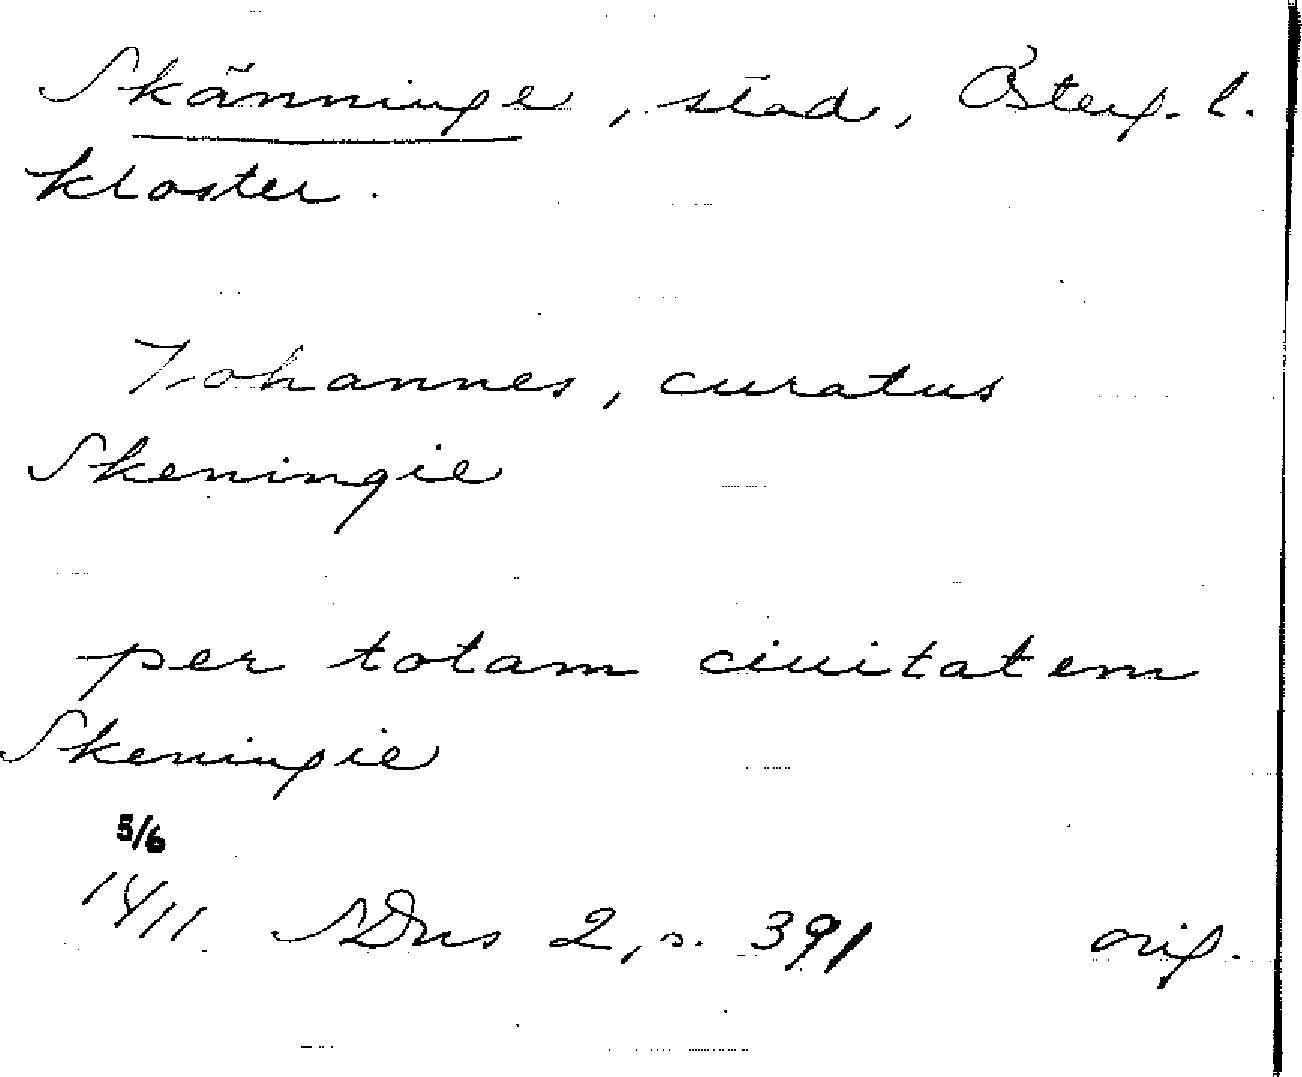 Skänninge, stad, Österg. l.
kloster.
Johannes, curatus
Skeningie
per totam ciuitatem
Skeningie
5/6
1411 SDns 2, s. 391 orig.